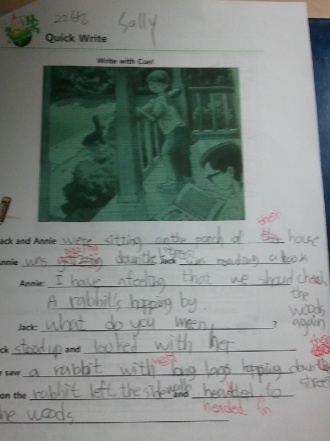 22nd Sally
Quick Write
Write with Cue!
ack and Annie were sitting on the porch of their house
nnie was down the Jack was reading a book
Annie: I have a feeling that we should check
A rabbit's hopping by the woods again
Jack: what do you meen ?
ck stood up and looked with her
e saw a rabbit with very long legs hopping down the street
on the rabbit left the sidewalk and headed to
headed in
he woods